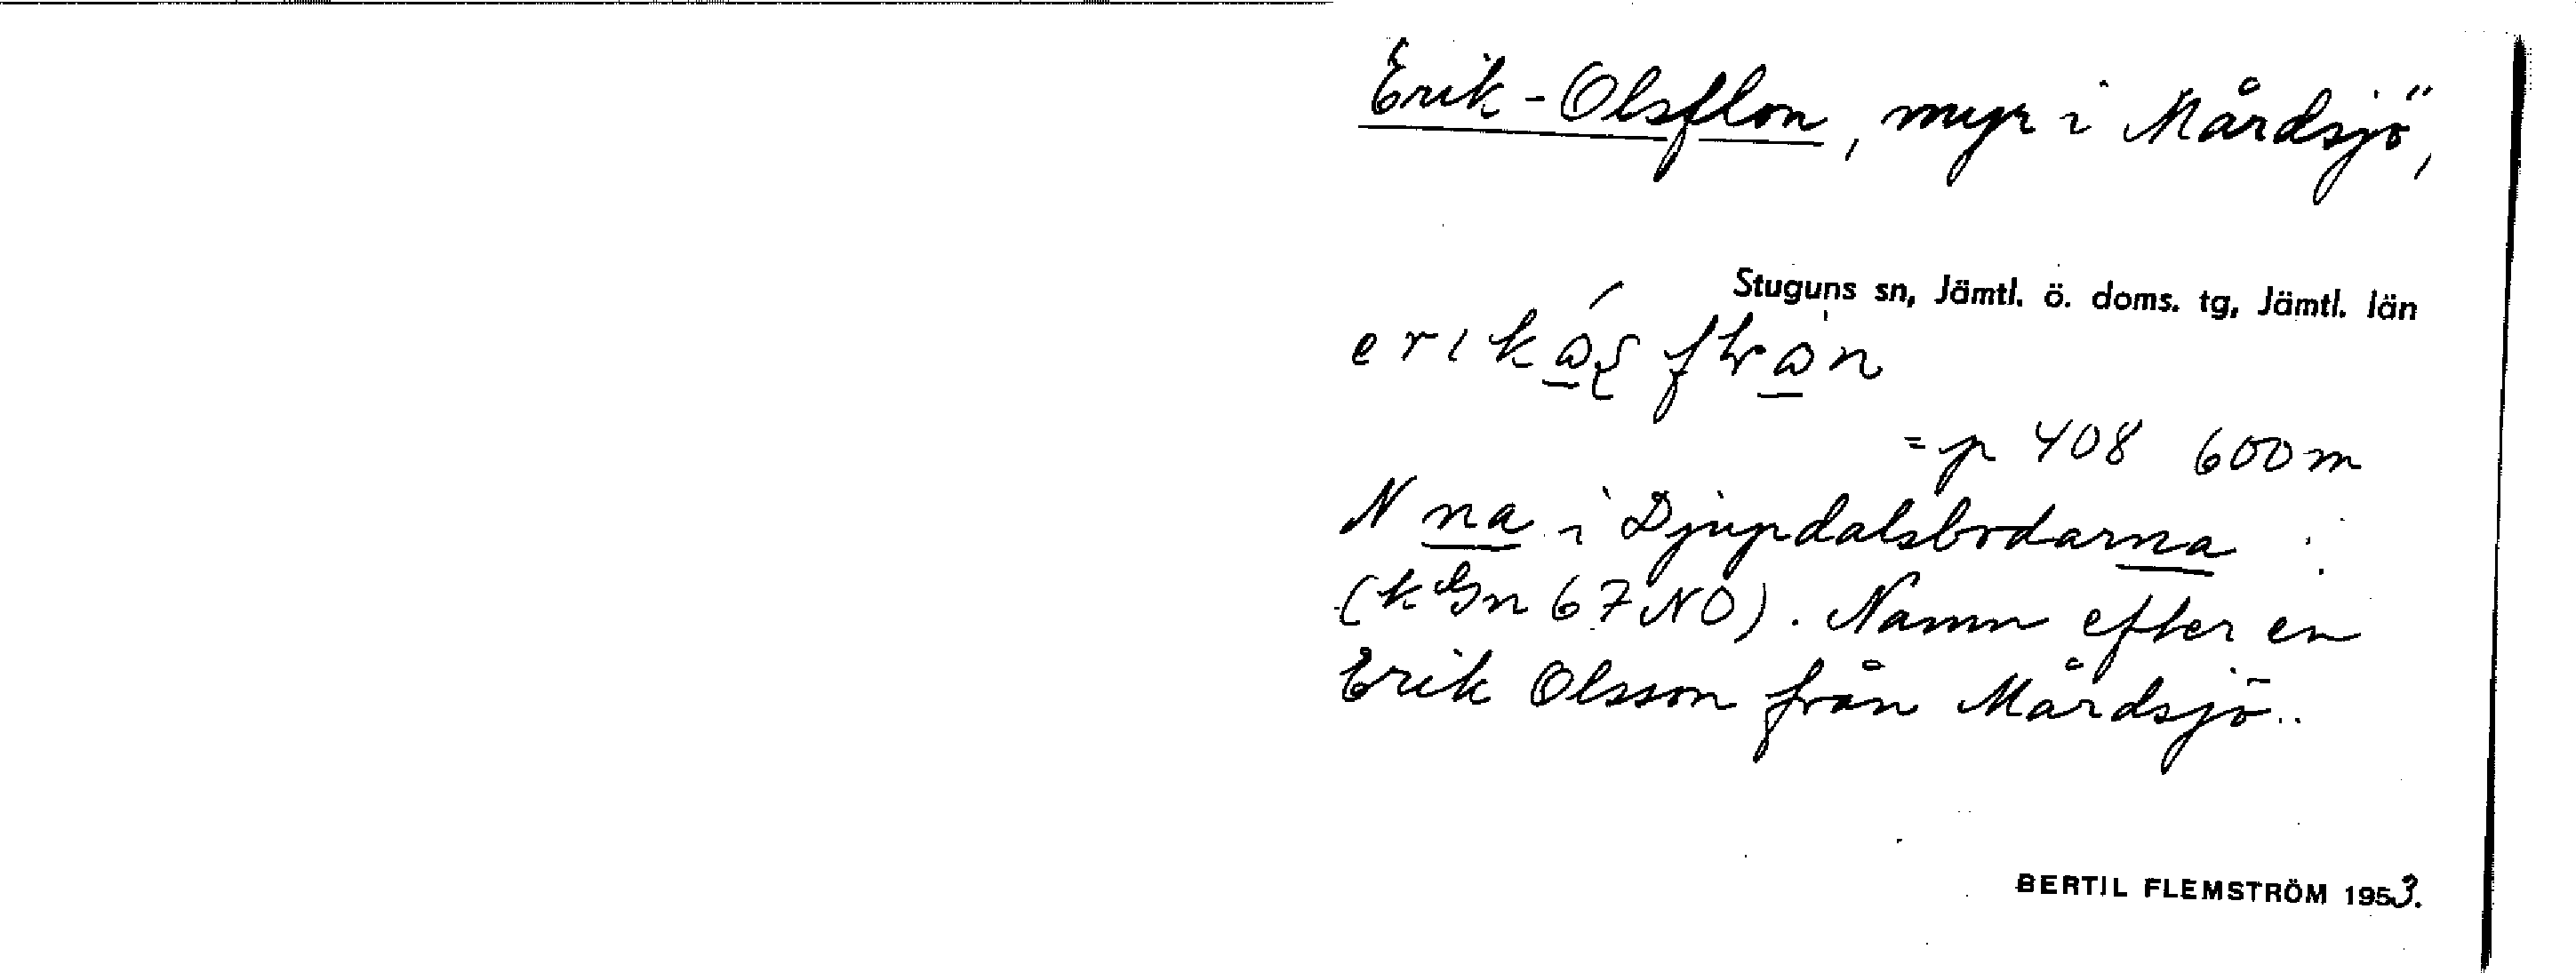 Erik-Olsflon, myr i Mårdsjö,
Stuguns sn, Jämtl. ö. doms. tg, Jämtl. län
= p 408 600 m
N na i Djupdalsbodarna
(k Gn 67 NO). Namn efter en
Erik Olsson från Mårdsjö.
BERTIL FLEMSTRÖM 1953.